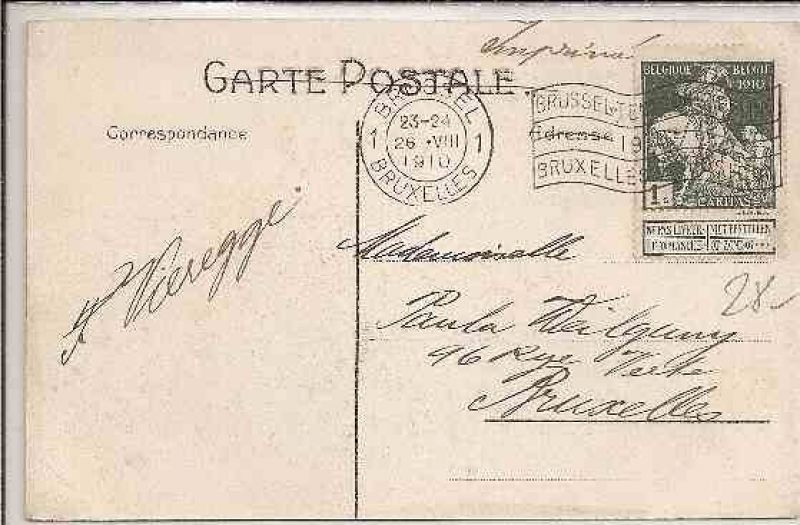 Imprimé
CARTE POSTALE
BELGIQUE BELGIË
1910
1
CARITAS
NE PAS LIVRER
LE DIMANCHE
NIET BESTELLEN
OP ZONDAG
BRUSSEL
23-24
1 26 · VIII 1
1910
BRUXELLES
BRUSSEL-TE
19
BRUXELLE
Correspondance
Adresse
F Vieregge
Mademoiselle
Paula Weilguny
96 Rue Verte
Bruxelles
28